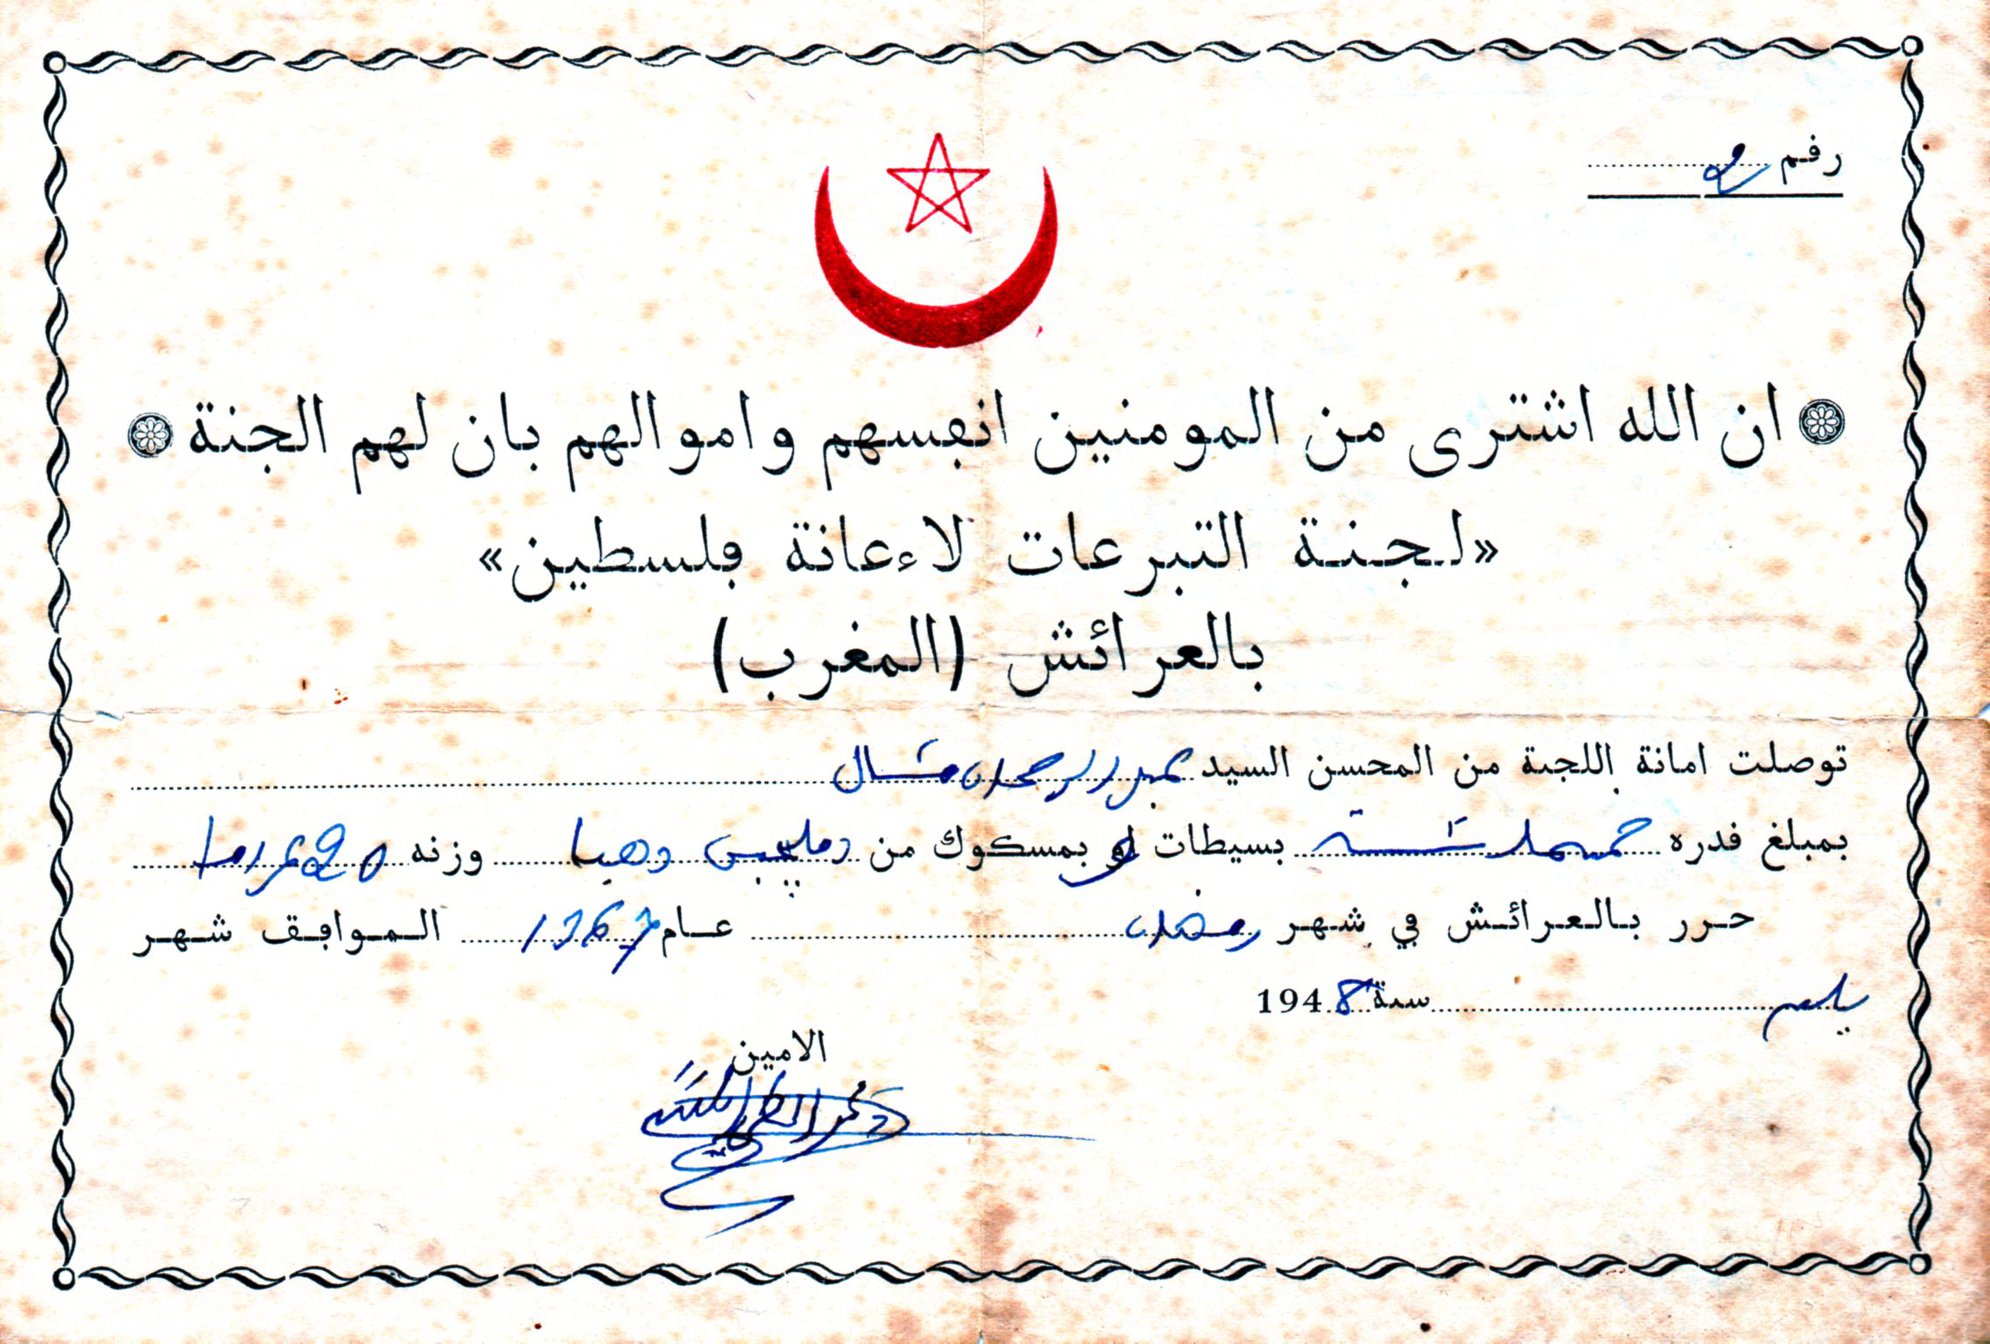 رفم
ان الله اشترى من المومنين انڢسهم واموالهم بان لهم الجنة
«لجنة التبرعات لاءعانة ڢلسطين»
بالعرائش (المغرب)
توصلت امانة اللجنة من المحسن السيد عبد الرحمان مشال
بمبلغ فدره خمسملـئـة بسيطات او بمسكوك من دملجين ذهبا وزنه
حرر بالعرائش ڢي شهر رمضان عام 1367 المواڢق شهر
سنة 1948
الامين